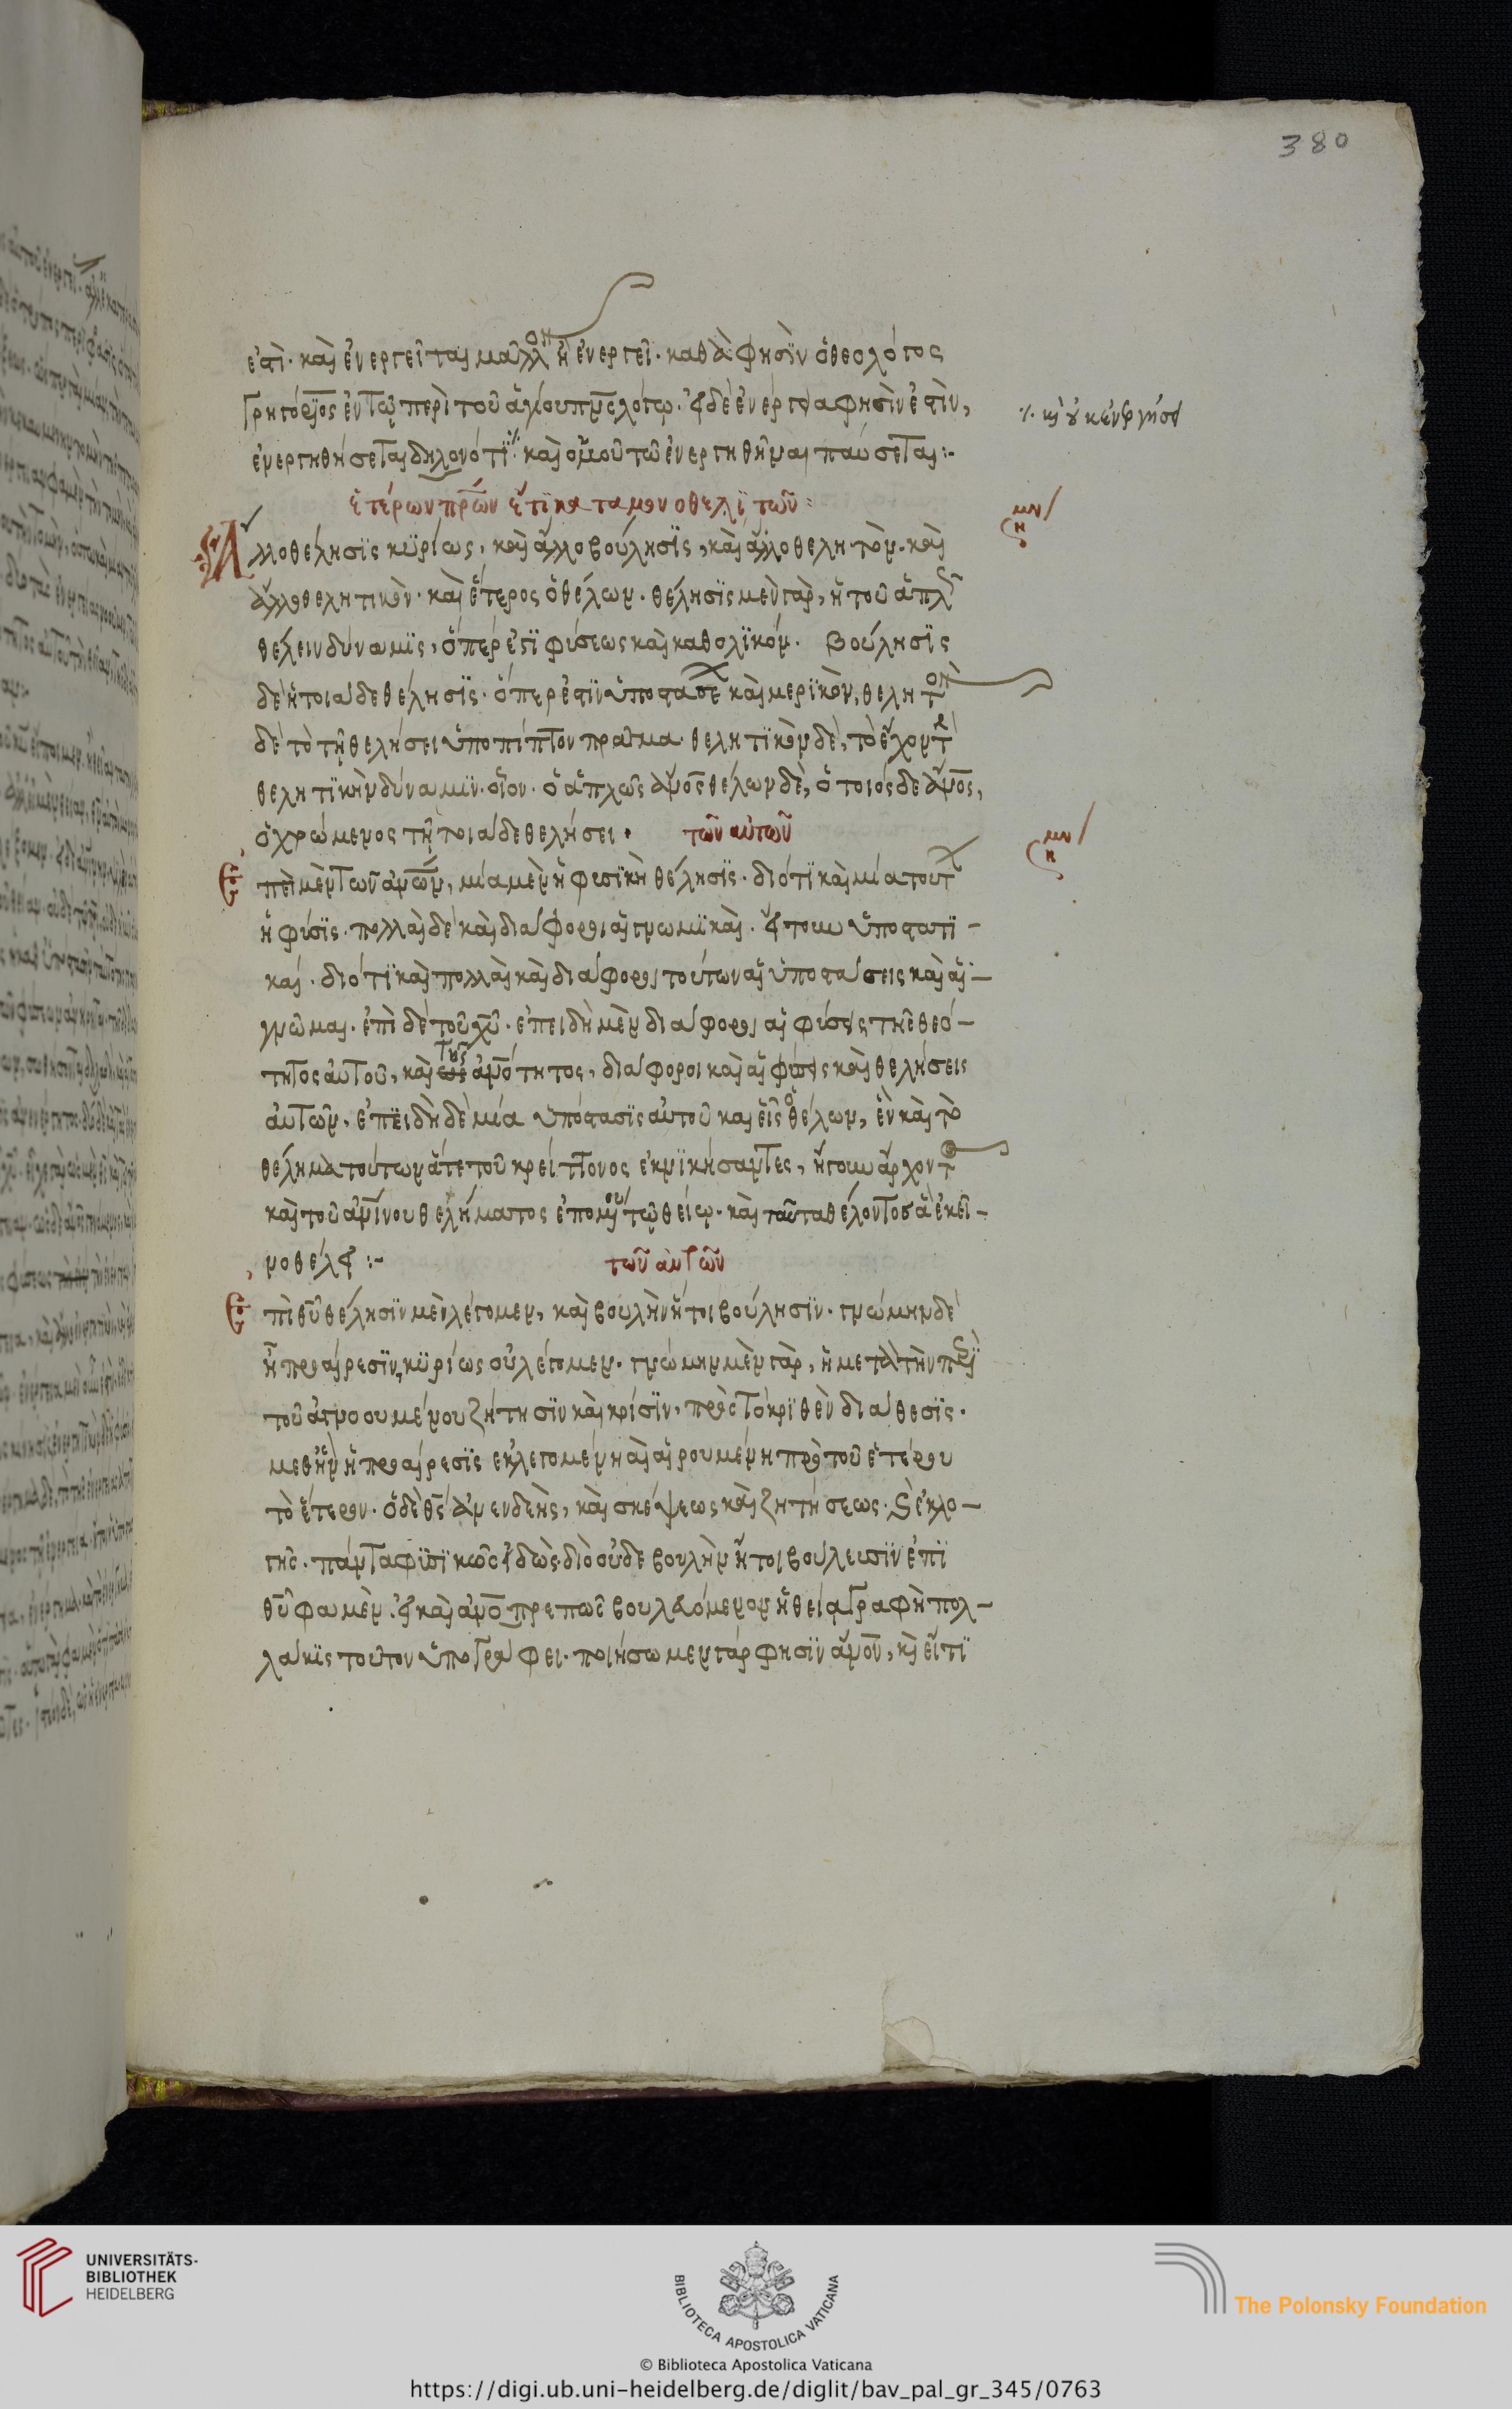 380
ἐστὶ· καὶ ἐνεργεῖται μᾶλλον ἢ ἐνεργεῖ· καθὰ φησὶν ὁ θεολόγος
Γρηγόριος ἐν τῷ περὶ τοῦ ἁγίου πνς λόγῳ· εἰ δὲ ἐνέργεια φησὶν ἐστὶν,
ἐνεργηθήσεται δηλονότι ⁒ καὶ ὁμοῦ τῶ ἐνεργηθῆναι παύσεται:-
⁒ κὶ οὐκ ἐνεργήσει
ἑτέρων πρων ἔτι κατα μονοθελιτῶν:
Ἄλλο θέλησις κυρίως, καὶ ἄλλο βούλησις, καὶ ἄλλο θελητὸν· καὶ
ἄλλο θελητικὸν· καὶ ἕτερος ὁ θέλων· θέλησις μὲν γὰρ, ἡ τοῦ ἁπλ
θέλειν δύναμις, ὅπερ ἐστὶ φύσεως καὶ καθολικόν· Βούλησις
δὲ ἡ τοιάδε θέλησις· ὅπερ ἐστὶν ὑποστάσε καὶ μερικὸν, θελητὸν
δὲ τὸ τῇ θελήσει ὑποπίπτον πραγμα· θελητικὸν δὲ, τὸ ἔχον τ
θελητικὴν δύναμιν· οἷον· ὁ ἁπλῶς ἄνος θέλων δὲ, ὁ τοιόσδε ἄνος,
ὁ χρώμενος τῇ τοιάδε θελήσει· τῶν αὐτῶν
Ἐπὶ μὲν τῶν ἀνων, μία μὲν ἡ φυσικὴ θέλησις· διότι καὶ μία τουτ
ἡ φύσις· πολλαὶ δὲ καὶ διάφοροι αἱ γνωμικαὶ· ἤγουν ὑποστατι-
καί· διότι καὶ πολλαὶ καὶ διάφοροι τούτων αἱ ὑποστάσεις καὶ αἱ-
γνῶμαι· ἐπὶ δὲ τοῦ χυ· ἐπειδὴ μὲν διάφοροι αἱ φύσεις τῆς θεό-
τητος αὐτοῦ, καὶ τῆς ἀνότητος, διάφοροι καὶ αἱ φύσεις καὶ θελήσεις
αὐτῶν, ἐπειδὴ δὲ μία ὑπόστασις αὐτοῦ καὶ εἷς ὁ θέλων, ἓν καὶ τὸ
θέλημα τούτων ἅτε τοῦ κρείττονος ἐκνικήσαντες, ἤγουν ἄρχοντο
καὶ τοῦ ἀνίνου θελήματος ἑπομένου τῷ θείῳ· καὶ ταῦτα θέλοντος ἃ ἐκεῖ-
νο θέλει:- τῶν αὐτῶν
Ἐπὶ θυ θέλησιν μὲν λέγομεν, καὶ βουλὴν ἤτοι βούλησιν· γνώμην δὲ
ἢ προαίρεσιν, κυρίως οὐ λέγομεν· γνώμην μὲν γὰρ, ἡ μετὰ τὴν περὶ
τοῦ ἀγνοουμένου ζήτησιν καὶ κρίσιν, πρὸς τὸ κριθὲν διάθεσις·
μεθ' ἣν ἡ προαίρεσις ἐκλεγομένη καὶ αἱρουμένη πρὸ τοῦ ἑτέρου
τὸ ἕτερον· ὁ δὲ θς ἀνενδεὴς, καὶ σκέψεως καὶ ζητήσεως· κὶ ἐκλο-
γῆς· πάντα φυσικῶς εἰδὼς· διὸ οὐδὲ βουλὴν ἤτοι βούλευσιν ἐπὶ
θυ φαμὲν· εἰ καὶ ἀνοπρεπῶς βουλευόμενον ἡ θεία Γραφὴ πολ-
λάκις τοῦτον ὑπογράφει· ποιήσωμεν γὰρ φησὶν ἄνον, κὶ εἴ τι
UNIVERSITÄTS-
BIBLIOTHEK
HEIDELBERG
BIBLIOTECA APOSTOLICA VATICANA
The Polonsky Foundation
© Biblioteca Apostolica Vaticana
https://digi.ub.uni-heidelberg.de/diglit/bav_pal_gr_345/0763